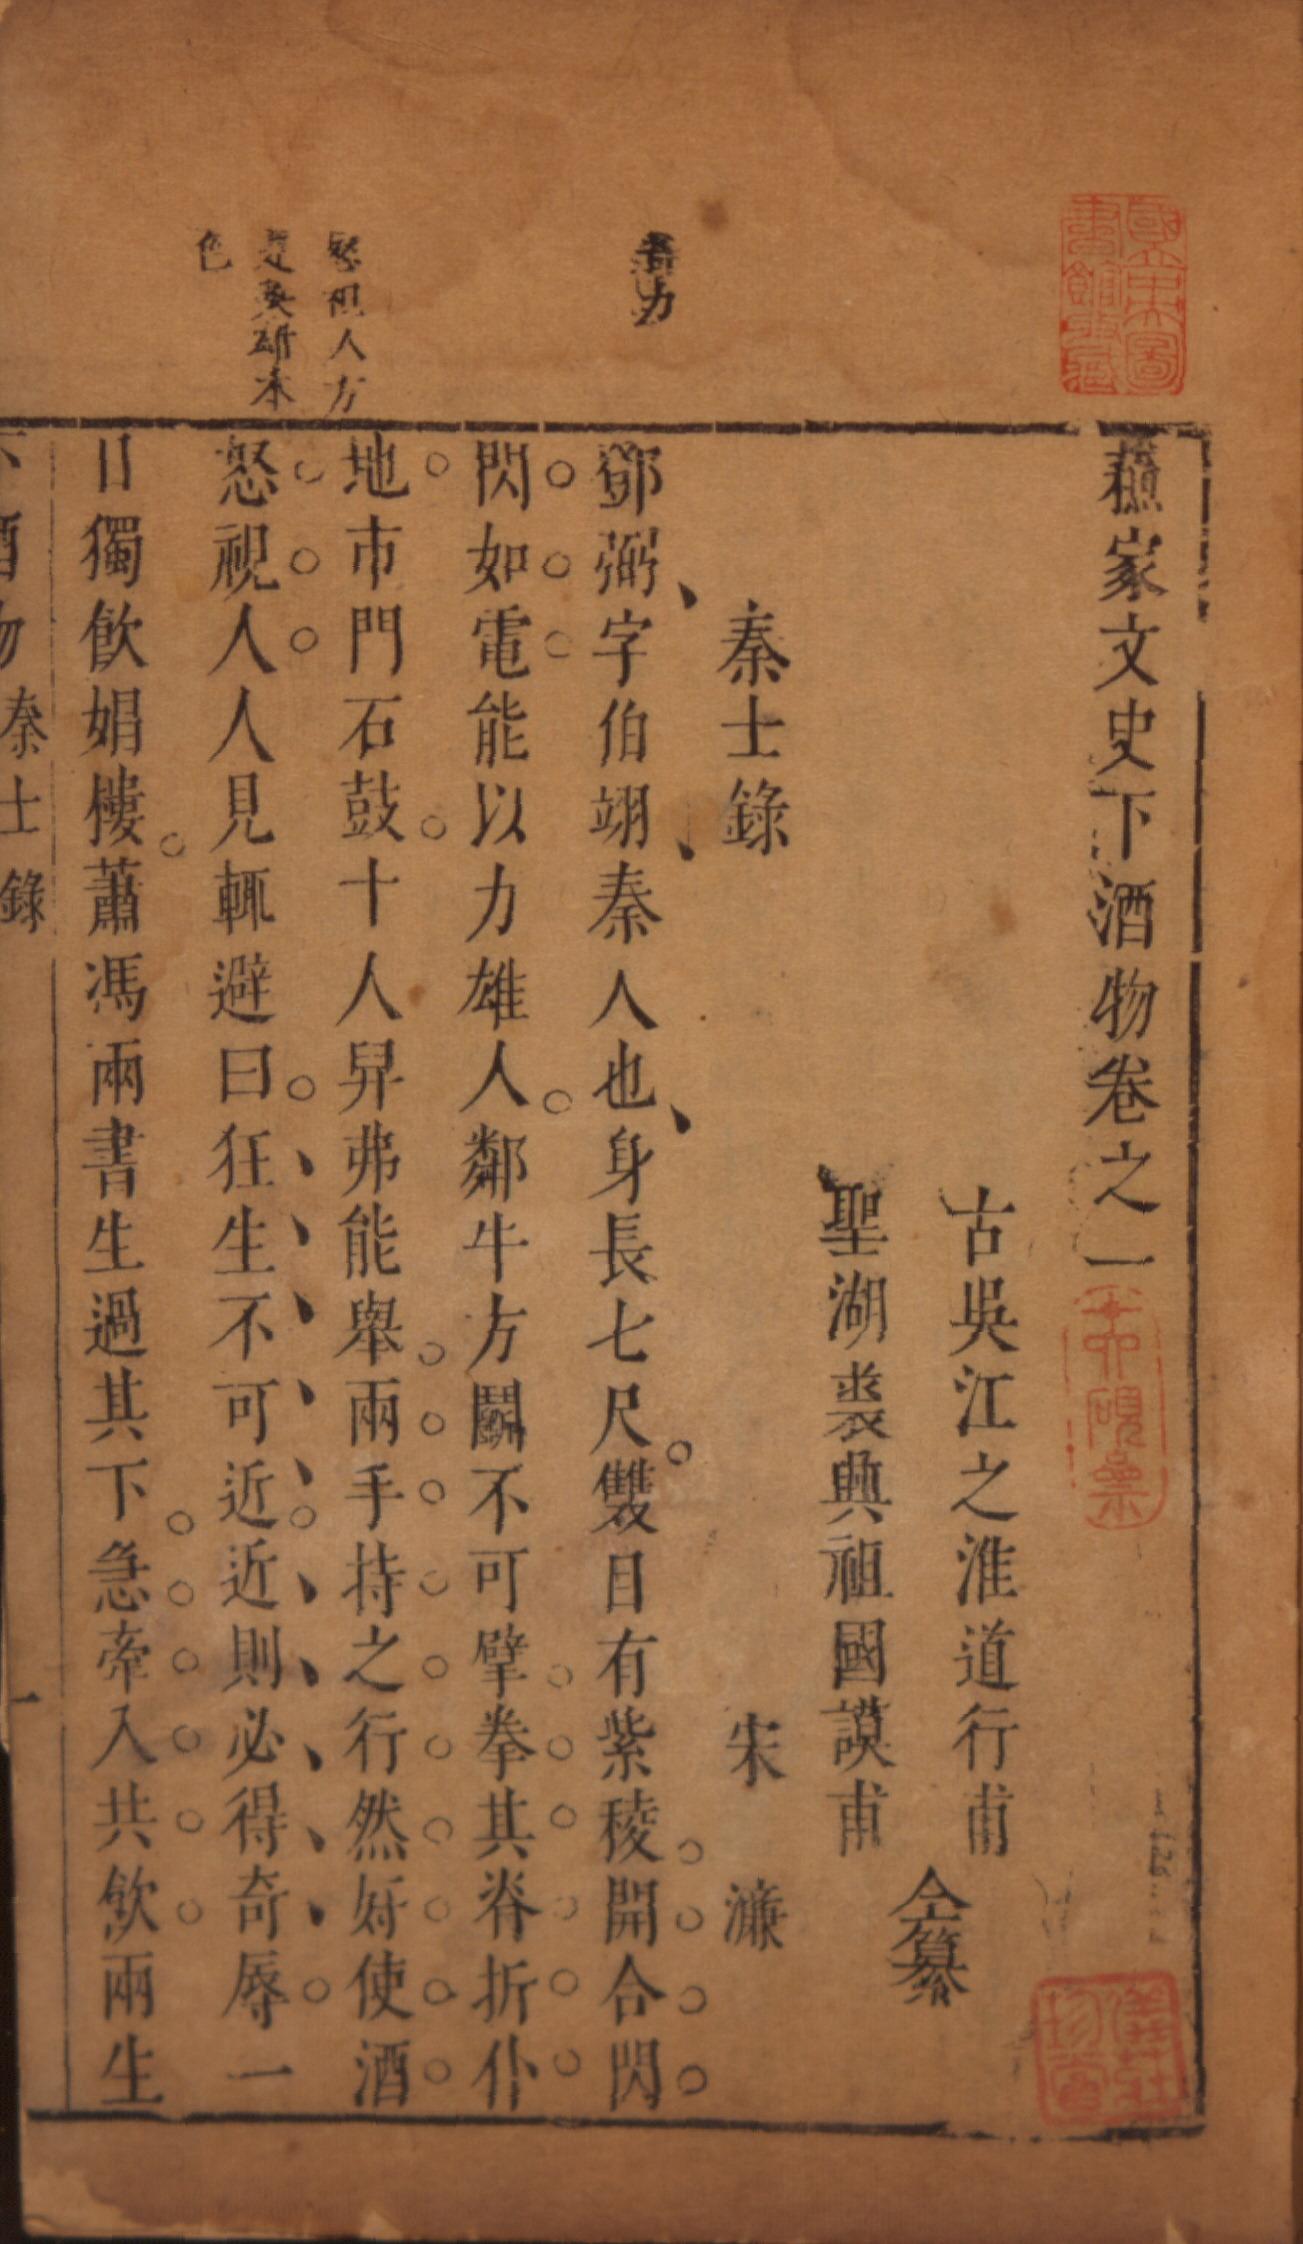 國立中央圖
書館收藏
蘓家文史下酒物卷之一
古吳江之淮道行甫
聖湖裘興祖國謨甫
仝纂
秦士錄 宋 濂
力
鄧弼字伯翊秦人也身長七尺雙目有紫稜開合閃
閃如電能以力雄人鄰牛方鬭不可擘拳其脊折仆
地市門石鼓十人舁弗能舉兩手持之行然好使酒
怒視人方
是英雄本
色
怒視人人見輒避曰狂生不可近近則必得奇辱一
日獨飮娼樓蕭馮兩書生過其下急牽入共飮兩生
下酒物 秦士錄 一